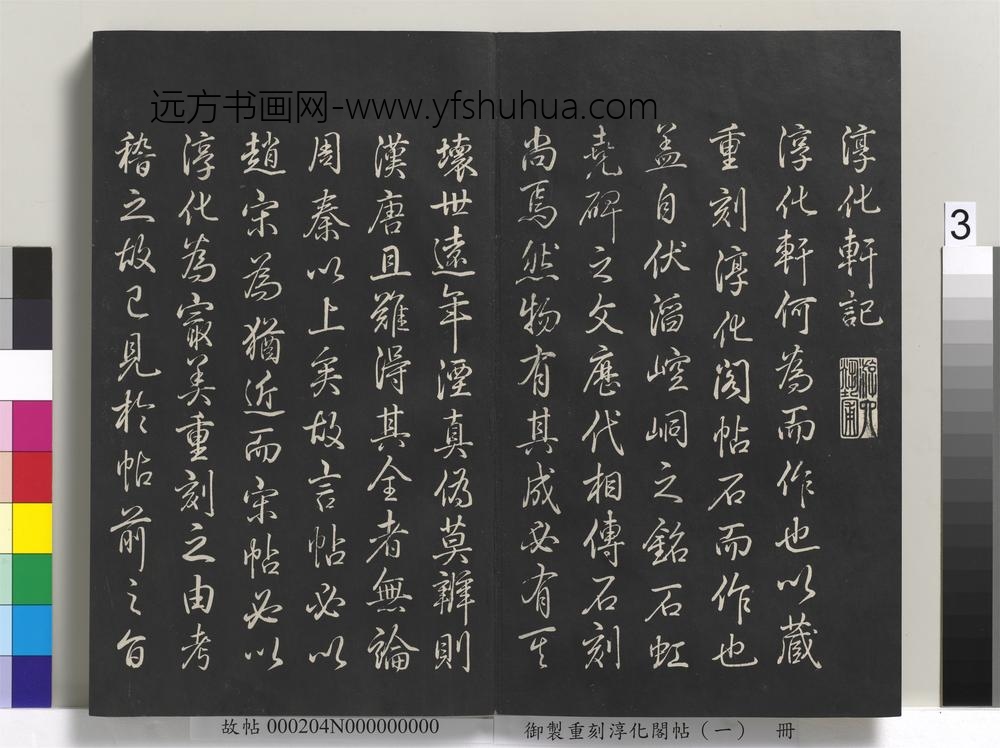 远方书画网-www.yfshuhua.com
淳化軒記
淳化軒何為而作也以藏
重刻淳化閣帖石而作也
盖自伏滔崆峒之銘石虹
堯碑之文歷代相傳石刻
尚焉然物有其成必有其
壞世遠年湮真偽莫辨則
漢唐且難得其全者無論
周秦以上矣故言帖必以
趙宋為猶近而宋帖必以
淳化為最美重刻之由考
稽之故已見於帖前之旨
3
故帖 000204N000000000
御製重刻淳化閣帖（一） 冊